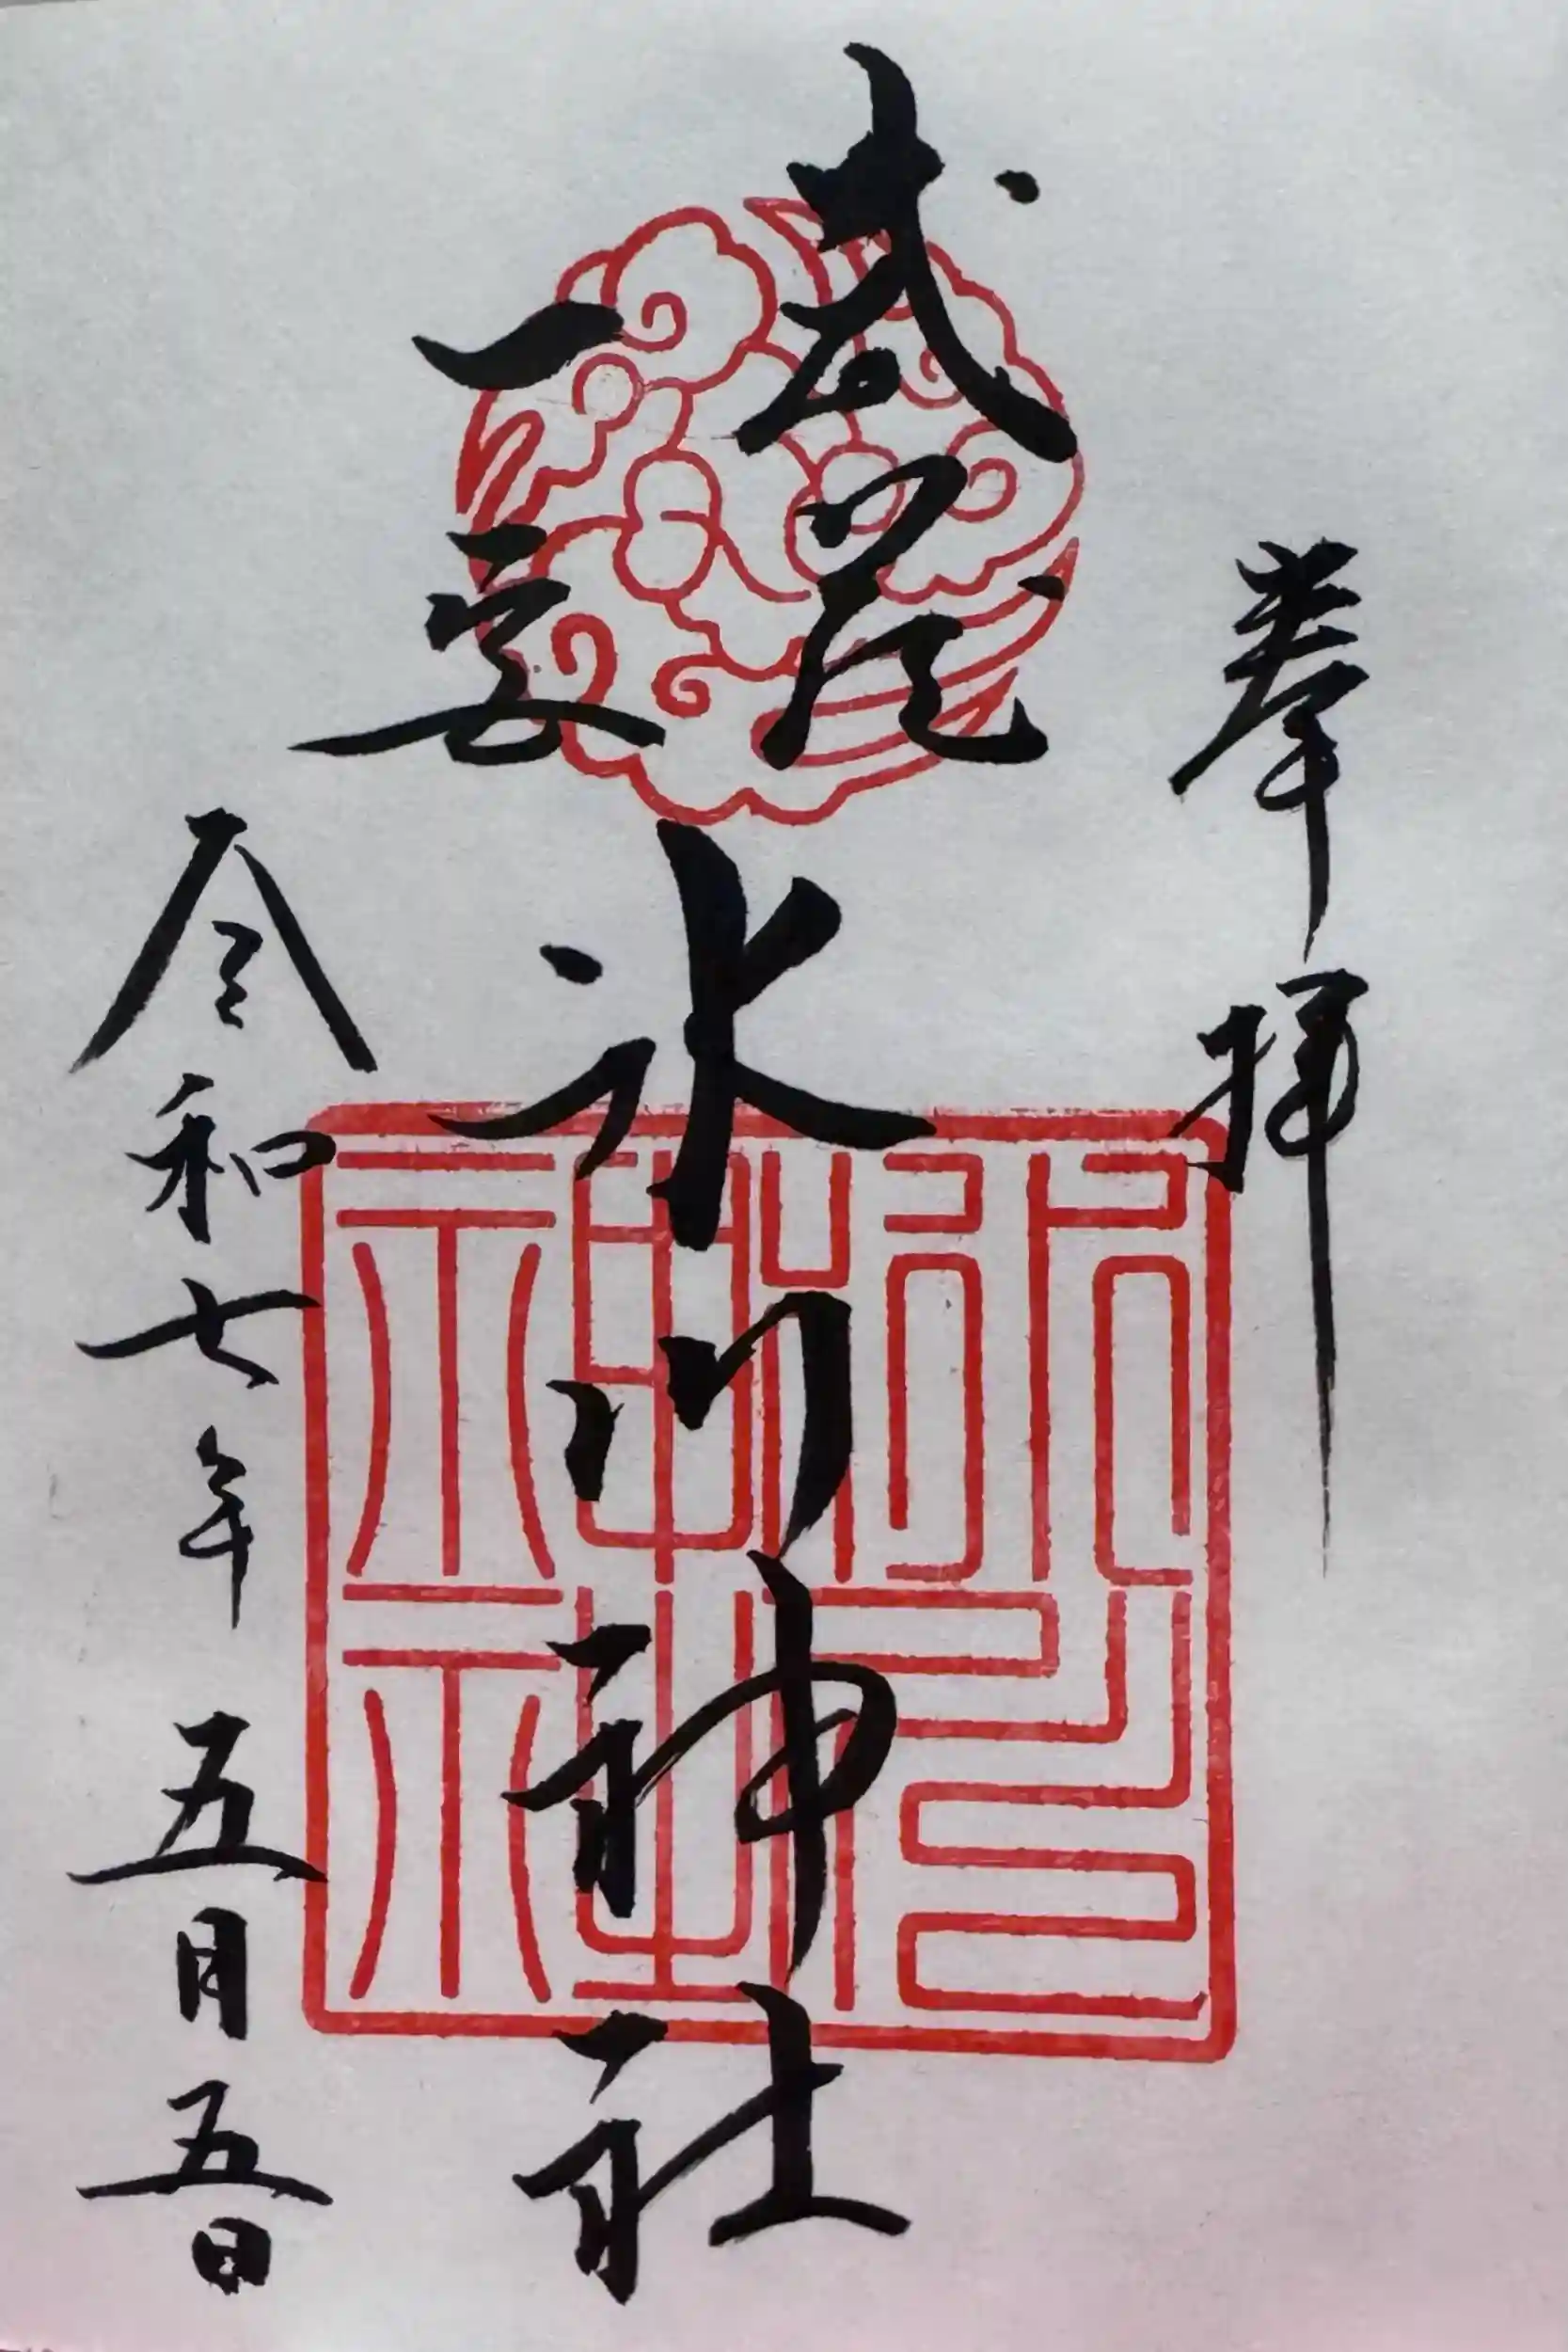 奉拝
武蔵
一宮
氷川神社
令和七年 五月五日
氷川神社